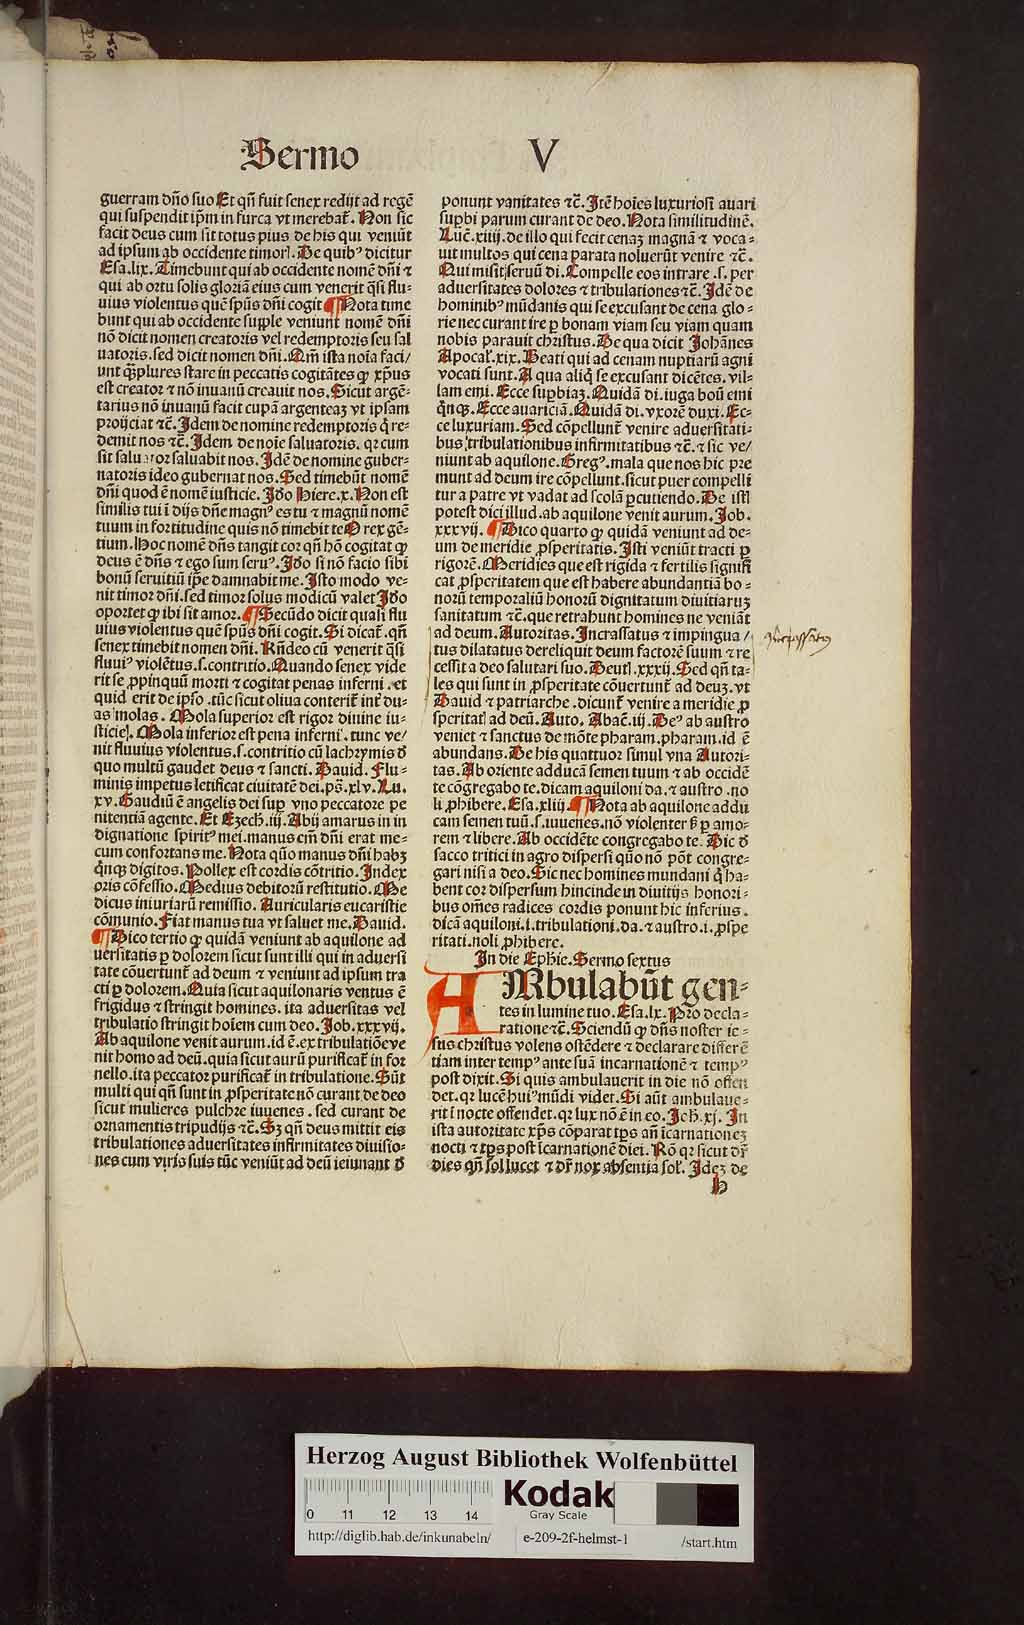 Sermo V
guerram dño suo Et qñ fuit senex redijt ad regē
qui suspendit ip̄m in furca vt merebat᷑. Non sic
facit deus cum sit totus pius de his qui veniūt
ad ipsum ab occidente timoris. De quibꝰ dicitur
Esa.lix. Timebunt qui ab occidente nomē dñi ⁊
qui ab ortu solis gloriā eius cum venerit q̄si flu-
uius violentus quē sp̄us dñi cogit ¶ Nota time
bunt qui ab occidente supple veniunt nomē dñi
nō dicit nomen creatoris vel redemptoris seu sal
uatoris. sed dicit nomen dñi. Qm̄ ista noīa faci/
unt q̄plures stare in peccatis cogitātes ꝙ xp̄us
est creator ⁊ nō inuanū creauit nos. Sicut argē-
tarius nō inuanū facit cupā argenteaꝫ vt ipsam
proijciat ⁊c̄. Idem de nomine redemptoris q̄ re-
demit nos ⁊c̄. Idem de noīe saluatoris. qꝛ cum
sit saluator saluabit nos. Idē de nomine guber-
natoris ideo gubernat nos. Sed timebūt nomē
dñi quod ē nomē iusticie. Iđo Hiere.x. Non est
similis tui ī dijs dñe magnꝰ es tu ⁊ magnū nomē
tuum in fortitudine quis nō timebit te O rex gē-
tium. Hoc nomē dñs tangit cor qñ hō cogitat ꝙ
deus ē dñs ⁊ ego sum seruꝰ. Iđo si nō facio sibi
bonū seruitiū ip̄e damnabit me. Isto modo ve-
nit timor dñi. sed timor solus modicū valet Iđo
oportet ꝙ ibi sit amor. ¶ Secūdo dicit quasi flu
uius violentus quē sp̄us dñi cogit. Si dicat᷑. qñ
senex timebit nomen dñi. Rñdeo cū venerit q̄si
fluuiꝰ violētus.s.contritio. Quando senex vide
rit se ꝓpinquū morti ⁊ cogitat penas inferni. et
quid erit de ip̄o. tūc sicut oliua conterit᷑ int̄ du-
as molas. Mola superior est rigor diuine iu-
sticie. Mola inferior est pena inferni. tunc ve/
nit fluuius violentus.s.contritio cū lachrymis đ
quo multū gaudet deus ⁊ sancti. Dauid. Flu-
minis impetus letificat ciuitatē dei. ps̄.xlv. Lu.
xv. Gaudiū ē angelis dei suꝑ vno peccatore pe
nitentiā agente. Et Ezech.iij. Abij amarus in in
dignatione spiritꝰ mei. manus em̄ dñi erat me-
cum confortans me. Nota quō manus dñi habꝫ
q̄nqꝫ digitos. Pollex est cordis cōtritio. Index
oris cōfessio. Medius debitorū restitutio. Me
dicus iniuriarū remissio. Auricularis eucaristie
cōmunio. Fiat manus tua vt saluet me. Dauid.
¶ Dico tertio ꝙ quidā veniunt ab aquilone ad
uersitatis ꝑ dolorem sicut sunt illi qui in aduersi
tate cōuertunt᷑ ad deum ⁊ veniunt ad ipsum tra
cti ꝑ dolorem. Quia sicut aquilonaris ventus ē
frigidus ⁊ stringit homines. ita aduersitas vel
tribulatio stringit hoīem cum deo. Iob.xxxvij.
Ab aquilone venit aurum. id ē. ex tribulatiōe ve
nit homo ad deū. quia sicut aurū purificat᷑ in for
nello. ita peccator purificat᷑ in tribulatione. Sūt
multi qui qñ sunt in ꝓsperitate nō curant de deo
sicut mulieres pulchre iuuenes. sed curant de
ornamentis tripudijs ⁊c̄. Sꝫ qñ deus mittit eis
tribulationes aduersitates infirmitates diuisio-
nes cum viris suis tūc veniūt ad deū ieiunant đ
ponunt vanitates ⁊c̄. Itē hoīes luxuriosi auari
suꝑbi parum curant de deo. Nota similitudinē.
Luc̄.xiiij. de illo qui fecit cenaꝫ magnā ⁊ voca-
uit multos qui cena parata noluerūt venire ⁊c̄.
Qui misit seruū di. Compelle eos intrare.s. per
aduersitates dolores ⁊ tribulationes ⁊c̄. Idē de
hominibꝰ mūdanis qui se excusant de cena glo-
rie nec curant ire ꝑ bonam viam seu viam quam
nobis parauit christus. De qua dicit Johānes
Apocal᷑.xix. Beati qui ad cenam nuptiarū agni
vocati sunt. A qua aliq̄ se excusant dicētes. vil-
lam emi. Ecce suꝑbiaꝫ. Quidā di. iuga boū emi
q̄nqꝫ. Ecce auariciā. Quidā di. vxorē duxi. Ec-
ce luxuriam. Sed cōpellunt᷑ venire aduersitati-
bus tribulationibus infirmitatibus ⁊c̄. ⁊ sic ve/
niunt ab aquilone. Gregꝰ. mala que nos hic pre
munt ad deum ire cōpellunt. sicut puer compelli
tur a patre vt vadat ad scolā ꝑcutiendo. De istī
potest dici illud. ab aquilone venit aurum. Iob.
xxxvij. ¶ Dico quarto ꝙ quidā veniunt ad de-
um de meridie ꝓsperitatis. Isti veniūt tracti ꝑ
rigorē. Meridies que est rigida ⁊ fertilis signifi
cat ꝓsperitatem que est habere abundantiā bo-
norū temporaliū honorū dignitatum diuitiaruꝫ
sanitatum ⁊c̄. que retrahunt homines ne veniāt
ad deum. Autoritas. Incrassatus ⁊ impingua/
tus dilatatus dereliquit deum factorē suum ⁊ re
cessit a deo salutari suo. Deut̄.xxxij. Sed qñ ta-
les qui sunt in ꝓsperitate cōuertunt᷑ ad deuꝫ. vt
Dauid ⁊ patriarche. dicunt᷑ venire a meridie ꝓ
speritat̄ ad deū. Auto. Abac̄.iij. Deꝰ ab austro
veniet ⁊ sanctus de mōte pharam. pharam. id ē
abundans. De his quattuor simul vna Autori-
tas. Ab oriente adducā semen tuum ⁊ ab occidē
te cōgregabo te. dicam aquiloni da. ⁊ austro. no
li ꝓhibere. Esa.xliij. ¶ Nota ab aquilone addu
cam semen tuū.s.iuuenes. nō violenter s̄ ꝑ amo-
rem ⁊ libere. Ab occidēte congregabo te. Sic đ
sacco tritici in agro dispersi quō nō pōt congre-
gari nisi a deo. Sic nec homines mundani q̄ ha-
bent cor dispersum hincinde in diuitijs honori-
bus om̄es radices cordis ponunt hic inferius.
dicā aquiloni.i.tribulationi.da.⁊ austro.i.ꝓspe
ritati.noli ꝓhibere.
In die Ephie. Sermo sextus
AMbulabūt gen-
tes in lumine tuo. Esa.lx. Pro decla-
ratione ⁊c̄. Sciendū ꝙ dñs noster ie-
sus christus volens ostēdere ⁊ declarare differē
tiam inter tempꝰ ante suā incarnationē ⁊ tempꝰ
post dixit. Si quis ambulauerit in die nō offen
det. qꝛ lucē huiꝰ mūdi videt. Si aūt ambulaue-
rit ī nocte offendet. qꝛ lux nō ē in eo. Joh.xj. In
ista autoritate xp̄s cōparat tp̄s añ īcarnationeꝫ
nocti ⁊ tp̄s post īcarnationē diei. Rō qꝛ sicut dr̄
dies qñ sol lucet ⁊ dr̄ nox absentia sol᷑. Ideꝫ de
h
Herzog August Bibliothek Wolfenbüttel
0 11 12 13 14
Kodak
Gray Scale
http://diglib.hab.de/inkunabeln/ e-209-2f-helmst-1 /start.htm